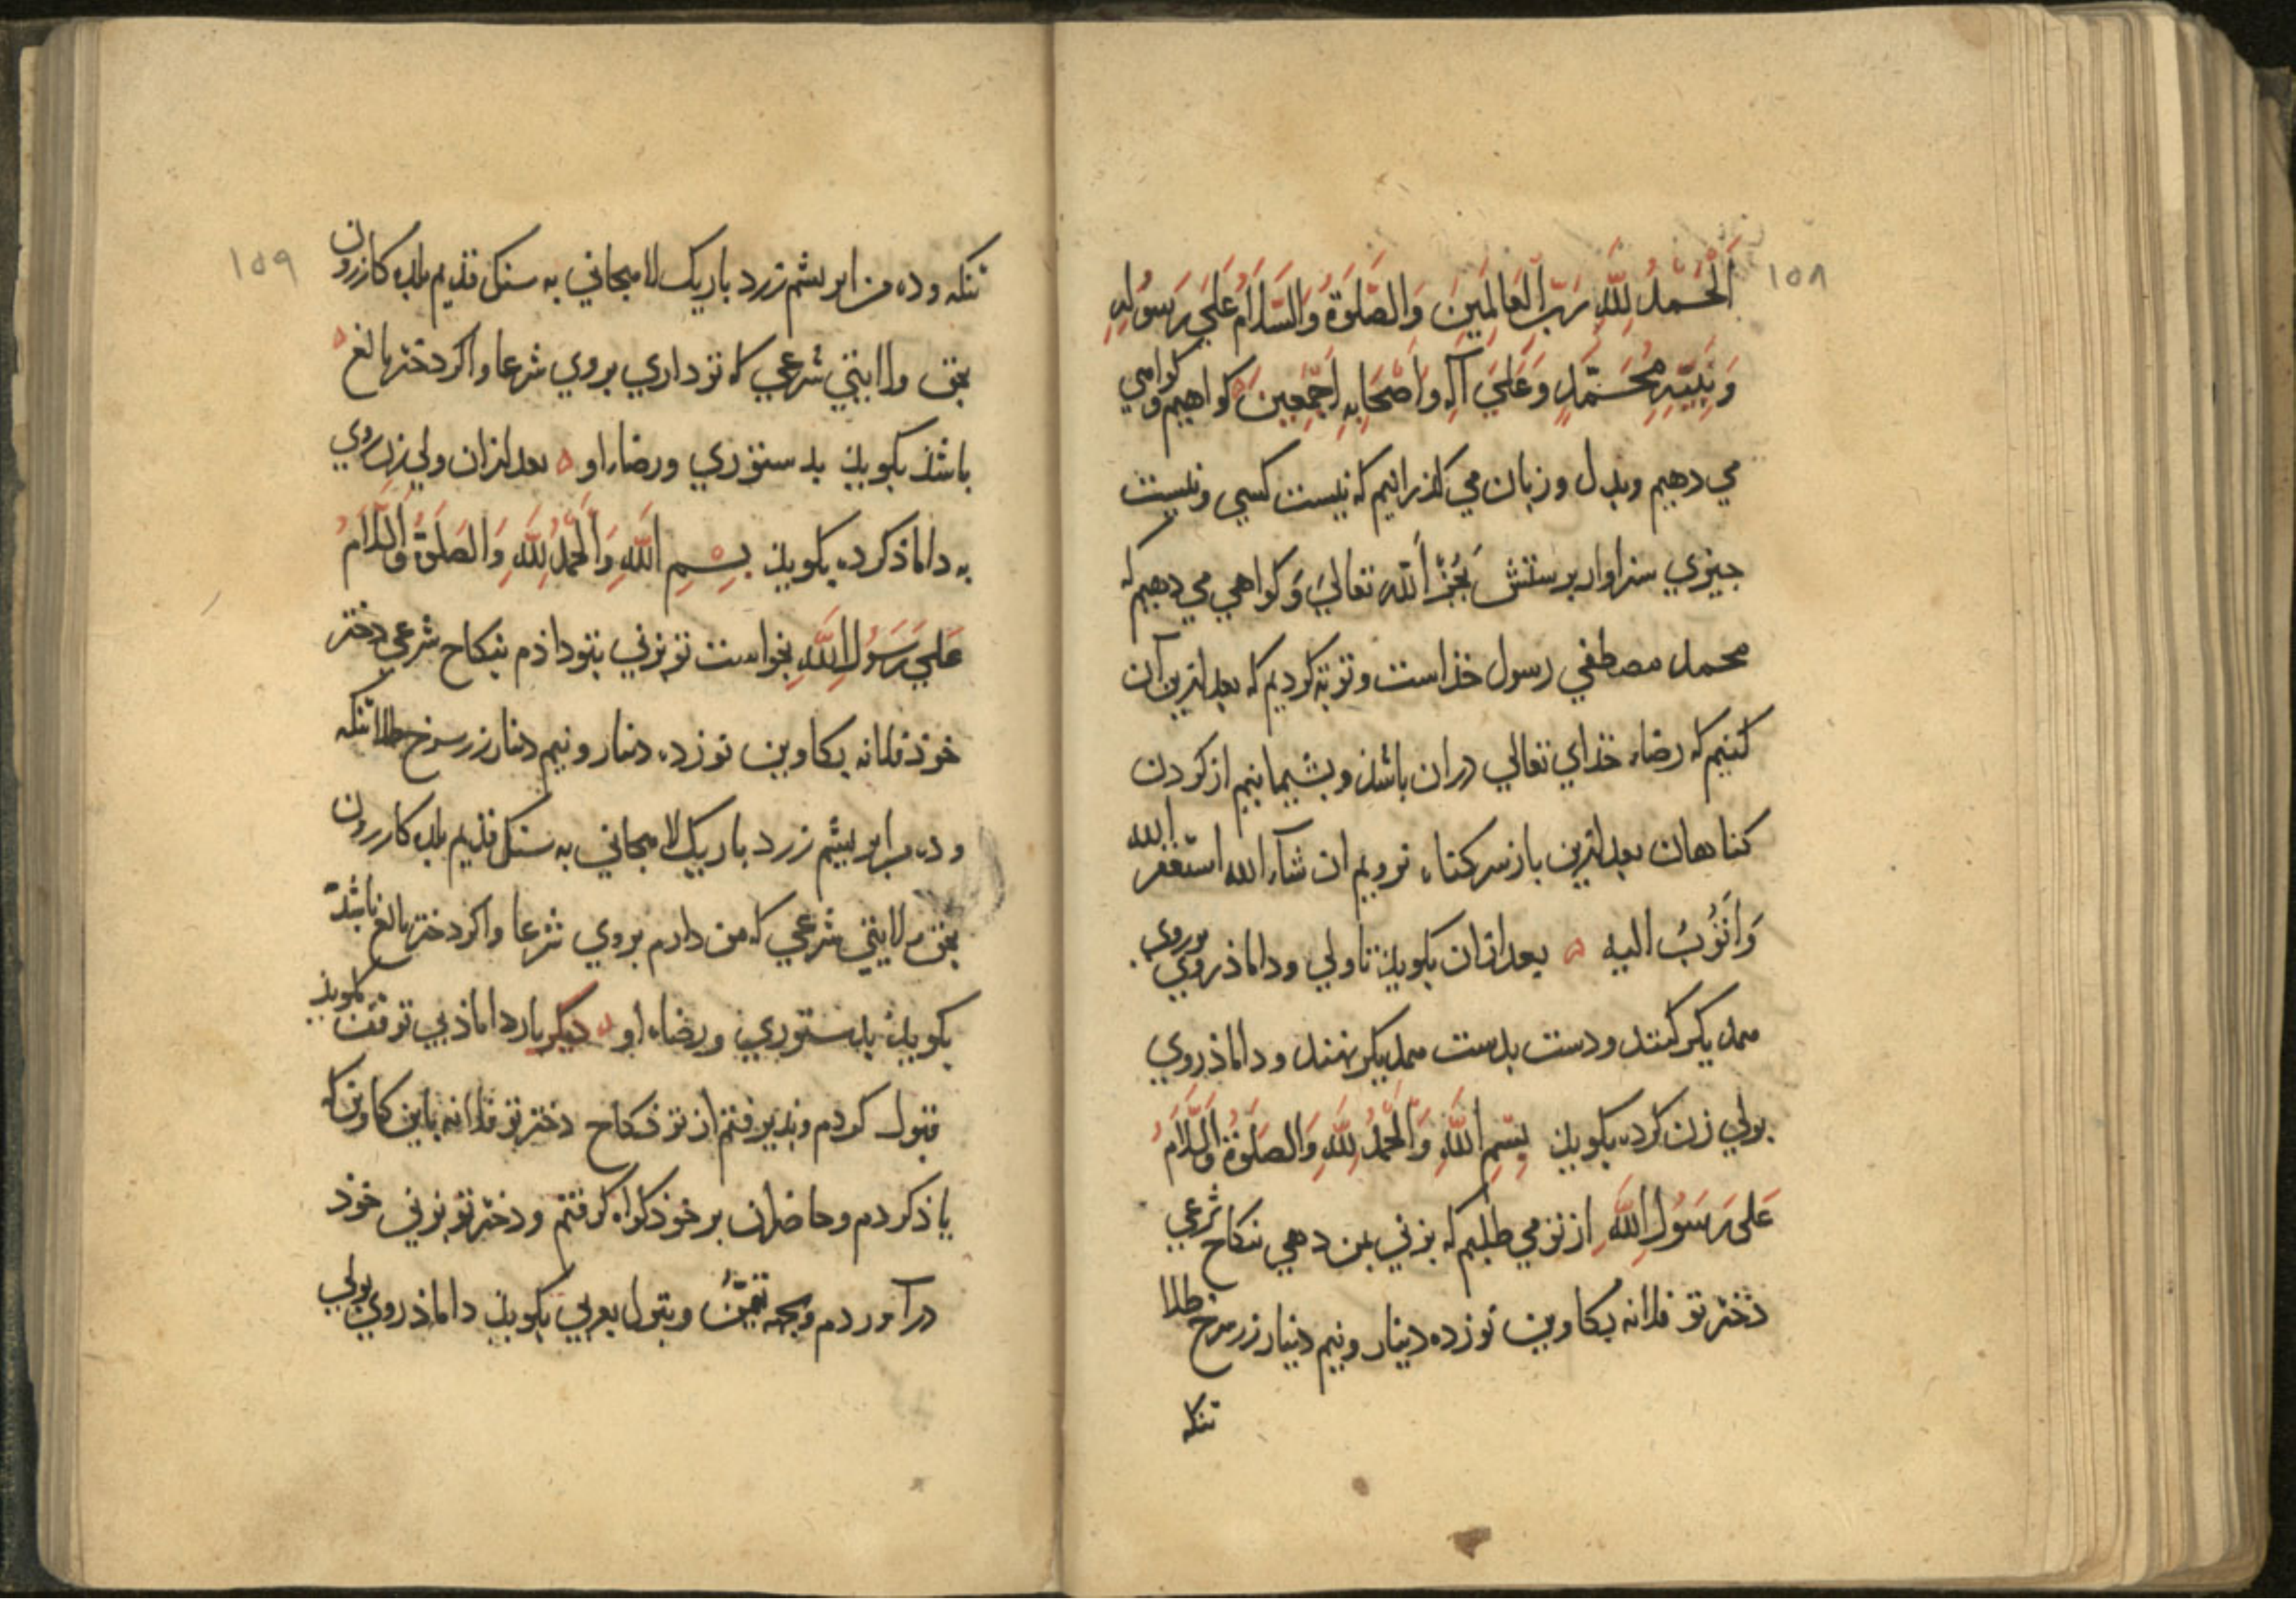 ١٥٨
اَلْحَمْدُ لِلَّهِ رَبِّ الْعَالَمِينَ وَالصَّلوَةُ وَالسَّلَامُ عَلَي رَسُولِهِ
وَنَبِيِّهِ مُحَمَّدٍ وَعَلَيَ آلِهِ وَاَصْحَابِهِ اَجْمَعِينَ كواهيم وكواهي
مي دهيم وبدل وزبان مي كذرانيم كه نيست كسي ونيست
جيزي سزاوار برستش بَجُز اَلله تعالي وَكواهي مي دهيم كه
محمد مصطفي رسول خذاست وتوبه كرديم كه بعد ازين آن
كنيم كه رضاء خذاي تعالي دران باشذ وبشيمانيم از كردن
كناهان بعد ازين باز سر كناه نرويم ان شآء الله استغفر الله
وَاَتُوبُ اليه ه بعد ازان بكويذ تا ولي وداماذ روي بروي
همديكر كنند ودست بدست همديكر نهند وداماذ روي
بولي زن كرده بكويذ بِسْمِ اللَّهِ وَالْحَمْدُ لِلَّهِ وَالصَلَوةُ وَالسَّلَامُ
عَلَى رَسُولِ اللَّهِ از تو مي طلبم كه بزني بمن دهي بنكاح شرعي
دختر تو فلانه بكاوين نوزده دينار ونيم دينار زر سرخ طلا
تنكه
١٥٩
تنكه وده من ابريشم زرد باريك لاهجاني به سنك قذيم بلده كازرون
بحق ولايتي شرعي كه تو داري بروي شرعا واكر دختر بالغ ه
باشذ بكويذ بدستوري ورضاء او ه بعد ازان ولي زن روي
به داماذ كرده بكويذ بِسْمِ اللَّهِ وَالْحَمْدُ لِلَّهِ وَالصَلَوةُ وَالسَّلَامُ
عَلَي رَسُولِ اللَّهِ بخواست تو بزني بتو داذم بنكاح شرعي دختر
خوذ فلانه بكاوين نوزده دينار ونيم دينار زر سرخ طلا تنكه
وده من ابريشم زرد باريك لاهجاني به سنك قذيم بلده كازرون
بحق ولايتي شرعي كه من دارم بروي شرعا واكر دختر بالغ باشذ
بكويذ بدستوري ورضاء او ه ديكر بار داماذ بي توقف بكويذ
قبول كردم وبذيرفتم از تو نكاح دختر تو فلانه باين كاوين كه
ياذ كردم وحاضران بر خوذ كواه كرفتم ودختر تو بزني خوذ
درآوردم وبجهه تيمّن وبتول بعربي بكويذ داماذ روي بولي